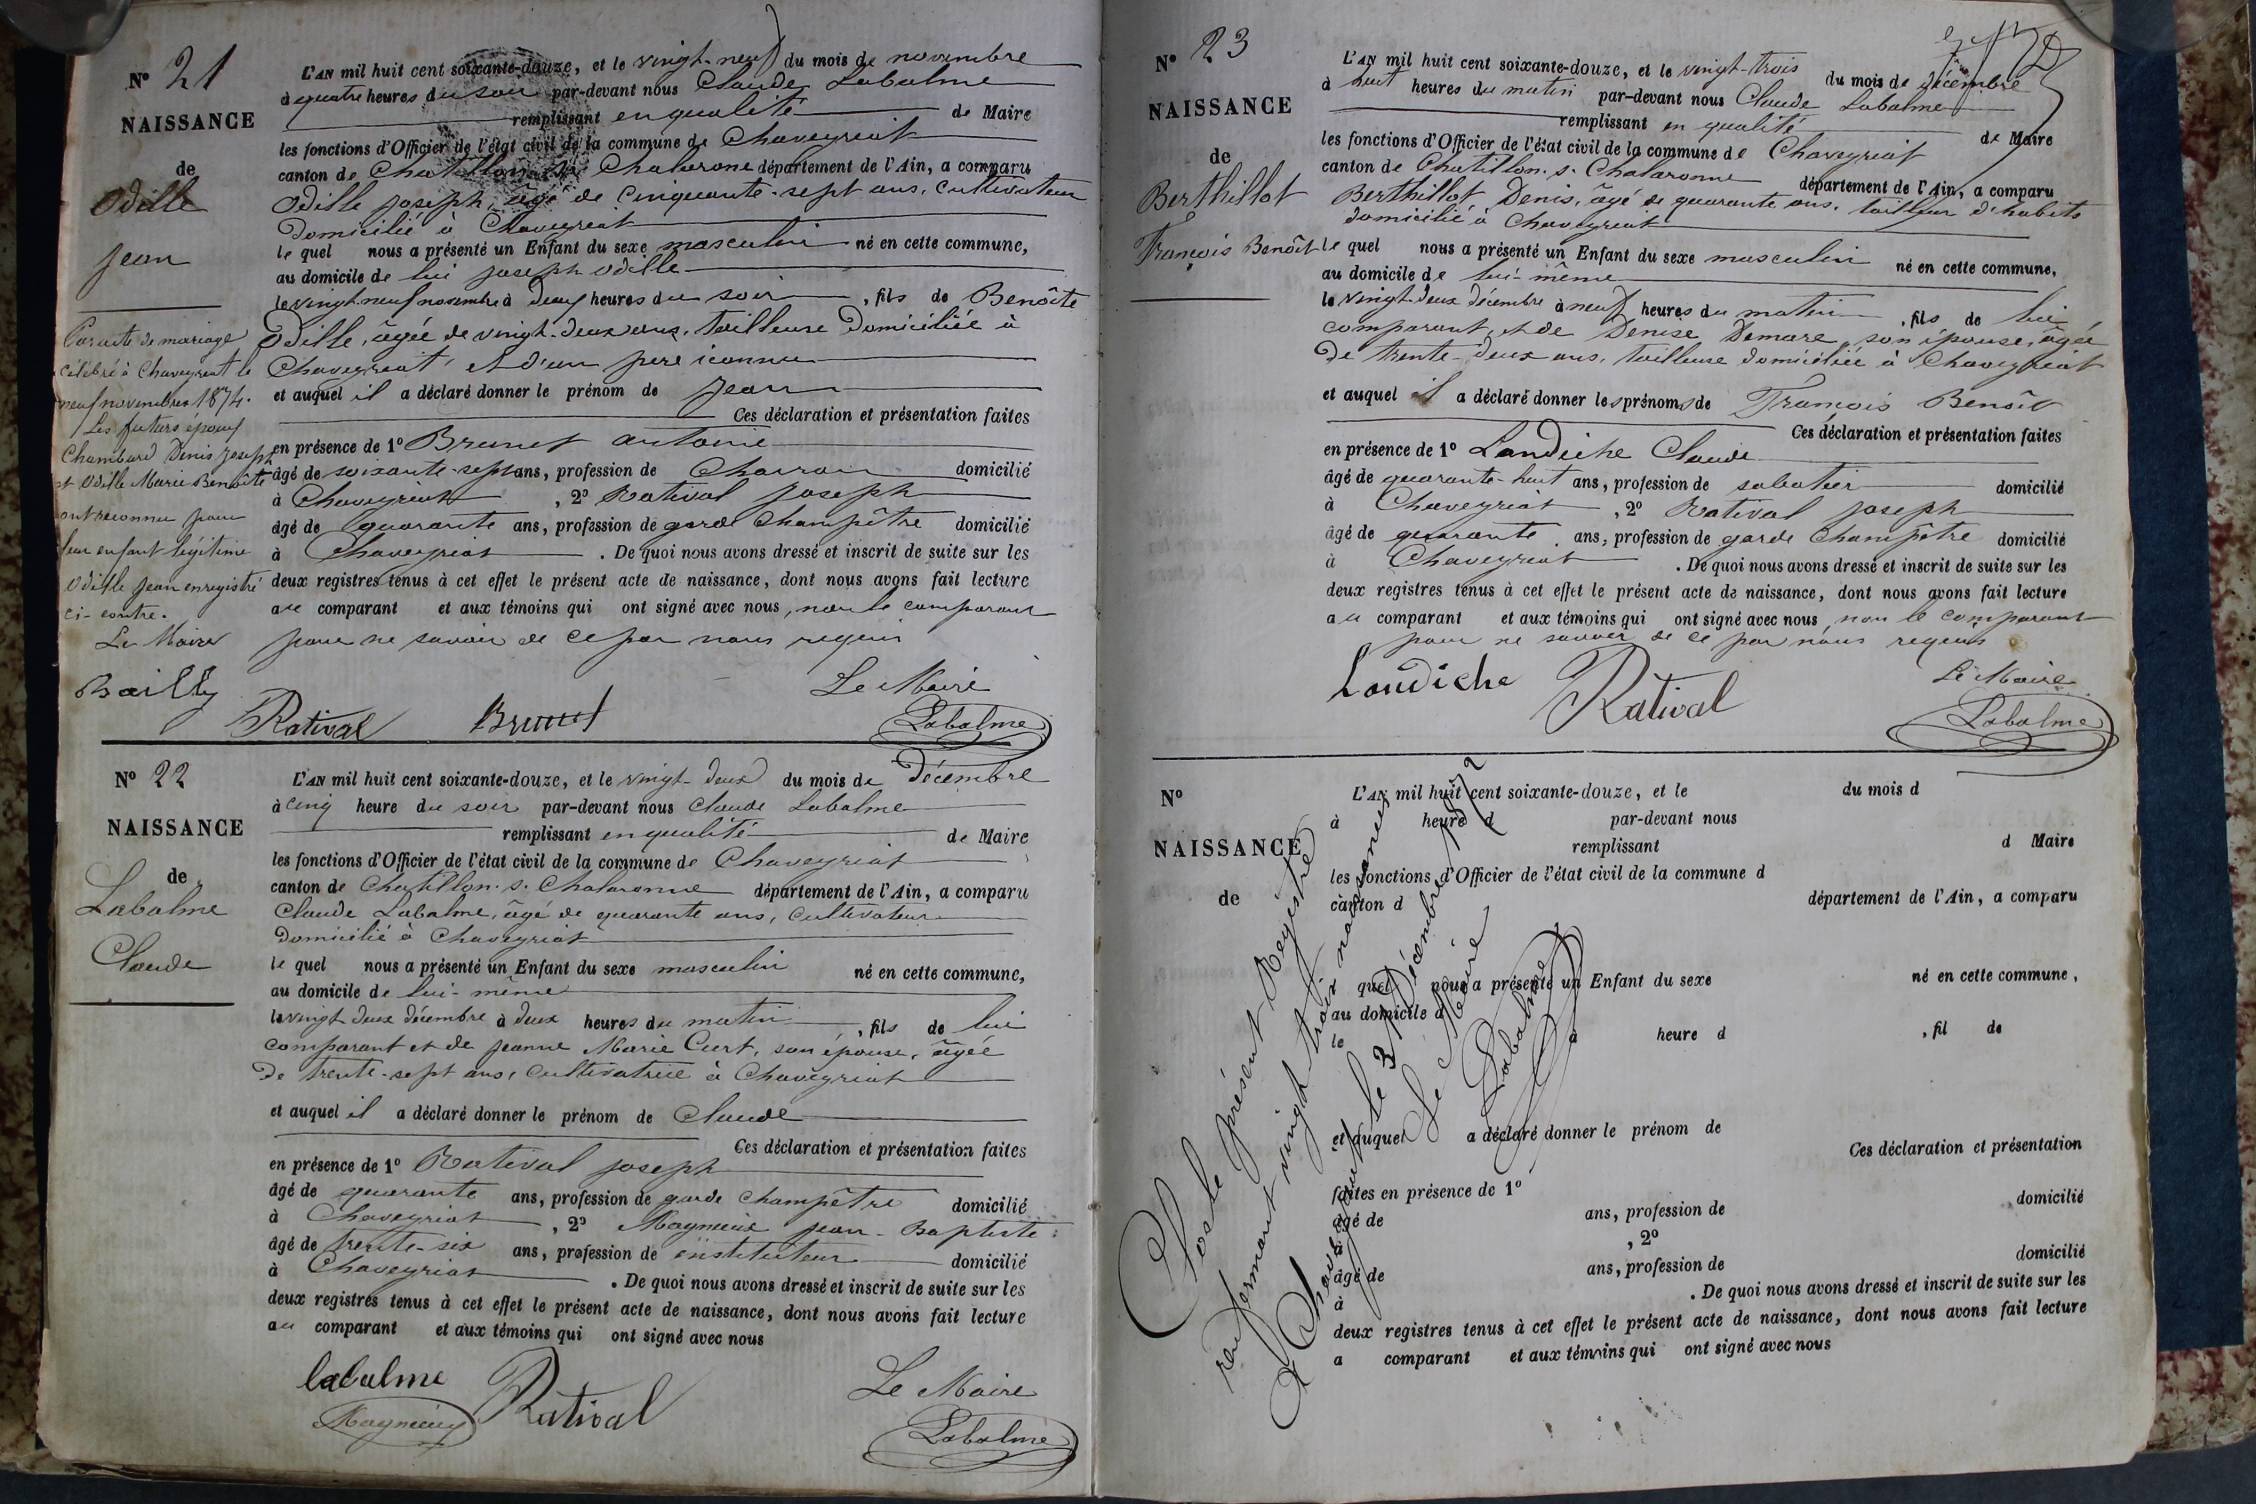 N° 21
NAISSANCE
de
Odille
Jean
Par acte de mariage
célébré à Chaveyriat le
neuf novembre 1874.
Les futurs époux
Chambard Denis Joseph
et Odille Marie Benoîte
ont reconnu pour
leur enfant légitime
Odille Jean enregistré
ci-contre.
Le Maire
Bailly
L'AN mil huit cent soixante-douze, et le vingt-neuf du mois de novembre
à quatre heures du soir par-devant nous Claude Labalme
remplissant en qualité de Maire
les fonctions d'Officier de l'état civil de la commune de Chaveyriat
canton de Chatillon s. Chalarone département de l'Ain, a comparu
Odille Joseph, âgé de cinquante-sept ans, cultivateur
Domicilié à Chaveyriat
le quel nous a présenté un Enfant du sexe masculin né en cette commune,
au domicile de lui Joseph Odille
le vingt-neuf novembre à deux heures du soir, fils de Benoîte
Odille, âgée de vingt-deux ans, tailleuse domiciliée à
Chaveyriat et d'un père iconnu
et auquel il a déclaré donner le prénom de Jean
Ces déclaration et présentation faites
en présence de 1° Brunet Antoine
âgé de soixante-sept ans, profession de Charron domicilié
à Chaveyriat, 2° Ratival Joseph
âgé de quarante ans, profession de garde champêtre domicilié
à Chaveyriat. De quoi nous avons dressé et inscrit de suite sur les
deux registres tenus à cet effet le présent acte de naissance, dont nous avons fait lecture
au comparant et aux témoins qui ont signé avec nous, non le comparant
pour ne savoir de ce par nous requis
Le Maire
Ratival Brunet Labalme
N° 22
NAISSANCE
de
Labalme
Claude
L'AN mil huit cent soixante-douze, et le vingt-deux du mois de décembre
à cinq heure du soir par-devant nous Claude Labalme
remplissant en qualité de Maire
les fonctions d'Officier de l'état civil de la commune de Chaveyriat
canton de Chatillon. s. Chalaronne département de l'Ain, a comparu
Claude Labalme, âgé de quarante ans, cultivateur
domicilié à Chaveyriat
le quel nous a présenté un Enfant du sexe masculin né en cette commune,
au domicile de lui-même
le vingt deux décembre à deux heures du matin, fils de lui
comparant et de Jeanne Marie Curt, son épouse, âgée
de trente-sept ans, cultivatrice à Chaveyriat
et auquel il a déclaré donner le prénom de Claude
Ces déclaration et présentation faites
en présence de 1° Ratival Joseph
âgé de quarante ans, profession de garde champêtre domicilié
à Chaveyriat, 2° Magnieux Jean-Baptiste
âgé de trente-six ans, profession de instituteur domicilié
à Chaveyriat. De quoi nous avons dressé et inscrit de suite sur les
deux registres tenus à cet effet le présent acte de naissance, dont nous avons fait lecture
au comparant et aux témoins qui ont signé avec nous
labalme Ratival Le Maire
Magnieux Labalme
N° 23
NAISSANCE
de
Berthillot
François Benoît
L'AN mil huit cent soixante-douze, et le vingt-trois du mois de décembre
à huit heures du matin par-devant nous Claude Labalme
remplissant en qualité de Maire
les fonctions d'Officier de l'état civil de la commune de Chaveyriat
canton de Chatillon. s. Chalaronne département de l'Ain, a comparu
Berthillot Denis, âgé de quarante ans, tailleur d'habits
domicilié à Chaveyriat
le quel nous a présenté un Enfant du sexe masculin né en cette commune,
au domicile de lui-même
le vingt-deux décembre à neuf heures du matin, fils de lui
comparant, et de Denise Demare, son épouse, âgée
de trente-deux ans, tailleuse domiciliée à Chaveyriat
et auquel il a déclaré donner les prénoms de François Benoît
Ces déclaration et présentation faites
en présence de 1° Landiche Claude
âgé de quarante-huit ans, profession de sabotier domicilié
à Chaveyriat, 2° Ratival Joseph
âgé de quarante ans, profession de garde champêtre domicilié
à Chaveyriat. De quoi nous avons dressé et inscrit de suite sur les
deux registres tenus à cet effet le présent acte de naissance, dont nous avons fait lecture
au comparant et aux témoins qui ont signé avec nous, non le comparant
pour ne savoir de ce par nous requis
Landiche Ratival Le Maire
Labalme
N°
NAISSANCE
de
L'AN mil huit cent soixante-douze, et le du mois d
à heure d par-devant nous
remplissant d Maire
les fonctions d'Officier de l'état civil de la commune d
canton d département de l'Ain, a comparu
quel nous a présenté un Enfant du sexe né en cette commune,
au domicile d
le à heure d, fil de
et auquel a déclaré donner le prénom de
Ces déclaration et présentation
faites en présence de 1°
âgé de ans, profession de domicilié
à, 2°
âgé de ans, profession de domicilié
à. De quoi nous avons dressé et inscrit de suite sur les
deux registres tenus à cet effet le présent acte de naissance, dont nous avons fait lecture
a comparant et aux témoins qui ont signé avec nous
Clos le présent Registre
renfermant vingt trois naissances
A Chaveyriat le 31 Décembre 1872
Le Maire
Labalme